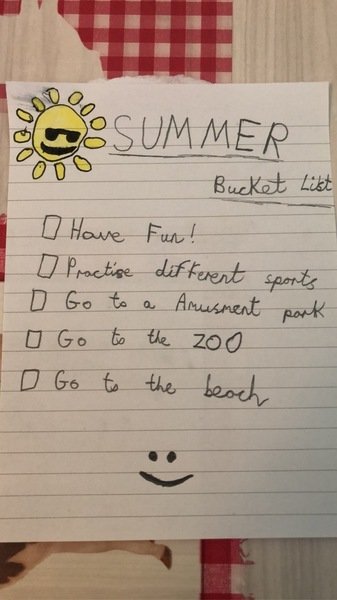 SUMMER
Bucket List
Have Fun!
Practise different sports
Go to a Amusment park
Go to the ZOO
Go to the beach